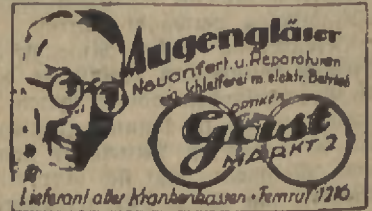 Augengläser
Neuanfert. u. Reparaturen
in Schleiferei m. elektr. Betrieb
OPTIKER
Gast
MARKT 2
Lieferant aller Krankenkassen · Fernruf 1216